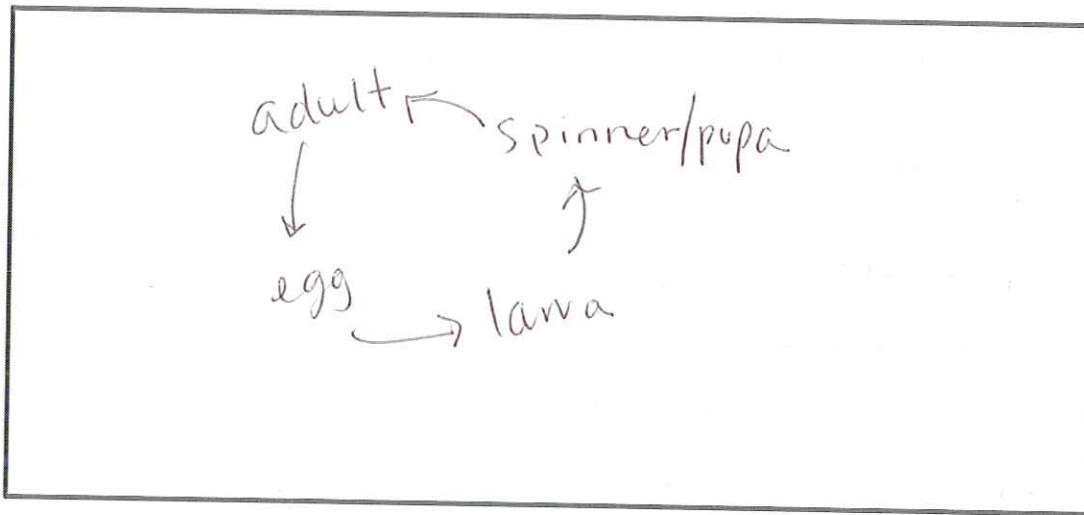 adult
spinner/pupa
egg
larva